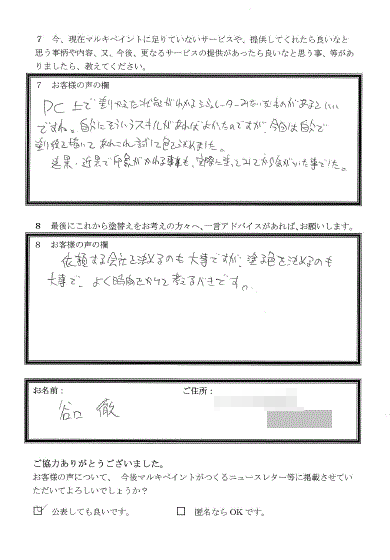 7 今、現在マルキペイントに足りていないサービスや、提供してくれたら良いなと
思う事柄や内容、又、今後、更なるサービスの提供があったら良いなと思う事、等があ
りましたら、教えてください。
7 お客様の声の欄
PC上で塗りかえた状態がわかるシミュレーターみたいなものがあるといい
ですね。自分にそういうスキルがあればよかったのですが、今回は自分で
塗り絵を描いてあれこれ試して色を決めました。
遠景・近景で印象がかわる事も、実際に塗ってみてから気がついた事でした。
8 最後にこれから塗替えをお考えの方々へ、一言アドバイスがあれば、お願いします。
8 お客様の声の欄
依頼する会社を決めるのも大事ですが、塗る色を決めるのも
大事で、よく時間をかけて考えるべきです。
お名前: ご住所:
谷口 徹
ご協力ありがとうございました。
お客様の声について、今後マルキペイントがつくるニュースレター等に掲載させてい
ただいてよろしいでしょうか?
公表しても良いです。 匿名ならOKです。